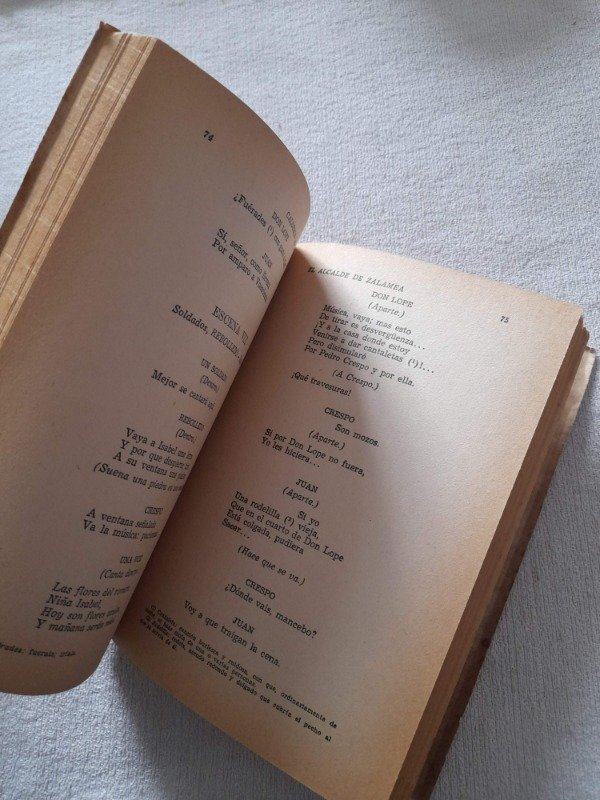 74
DON LOPE
¿Fuérades (¹)
JUAN
Sí, señor, como
Por amparo a
ESCENA
Soldados, REBOLLEDO,
UN SOLDADO
(Dentro.)
Mejor se cantará aquí
REBOLLEDO
(Dentro.)
Vaya a Isabel una
Y por que despierte,
A su ventana una
(Suena una piedra en
CRESPO
A ventana señalada
Va la música: paciencia
UNA VOZ
(Canta dentro.)
Las flores del romero,
Niña Isabel,
Hoy son flores azules
Y mañana serán
EL ALCALDE DE ZALAMEA
75
DON LOPE
(Aparte.)
Música, vaya; mas esto
De tirar es desvergüenza...
¡Y a la casa donde estoy
Venirse a dar cantaletas (¹)!...
Pero disimularé
Por Pedro Crespo y por ella.
(A Crespo.)
¡Qué travesuras!
CRESPO
Son mozos.
(Aparte.)
Si por Don Lope no fuera,
Yo les hiciera...
JUAN
(Aparte.)
Si yo
Una rodelilla (²) vieja,
Que en el cuarto de Don Lope
Está colgada, pudiera
Sacar...
(Hace que se va.)
CRESPO
¿Dónde vais, mancebo?
JUAN
Voy a que traigan la cena.
canción burlesca y ruidosa, con que, ordinariamente de
se hace mofa de una o varias personas.
rodela, escudo redondo y delgado que cubría el pecho al